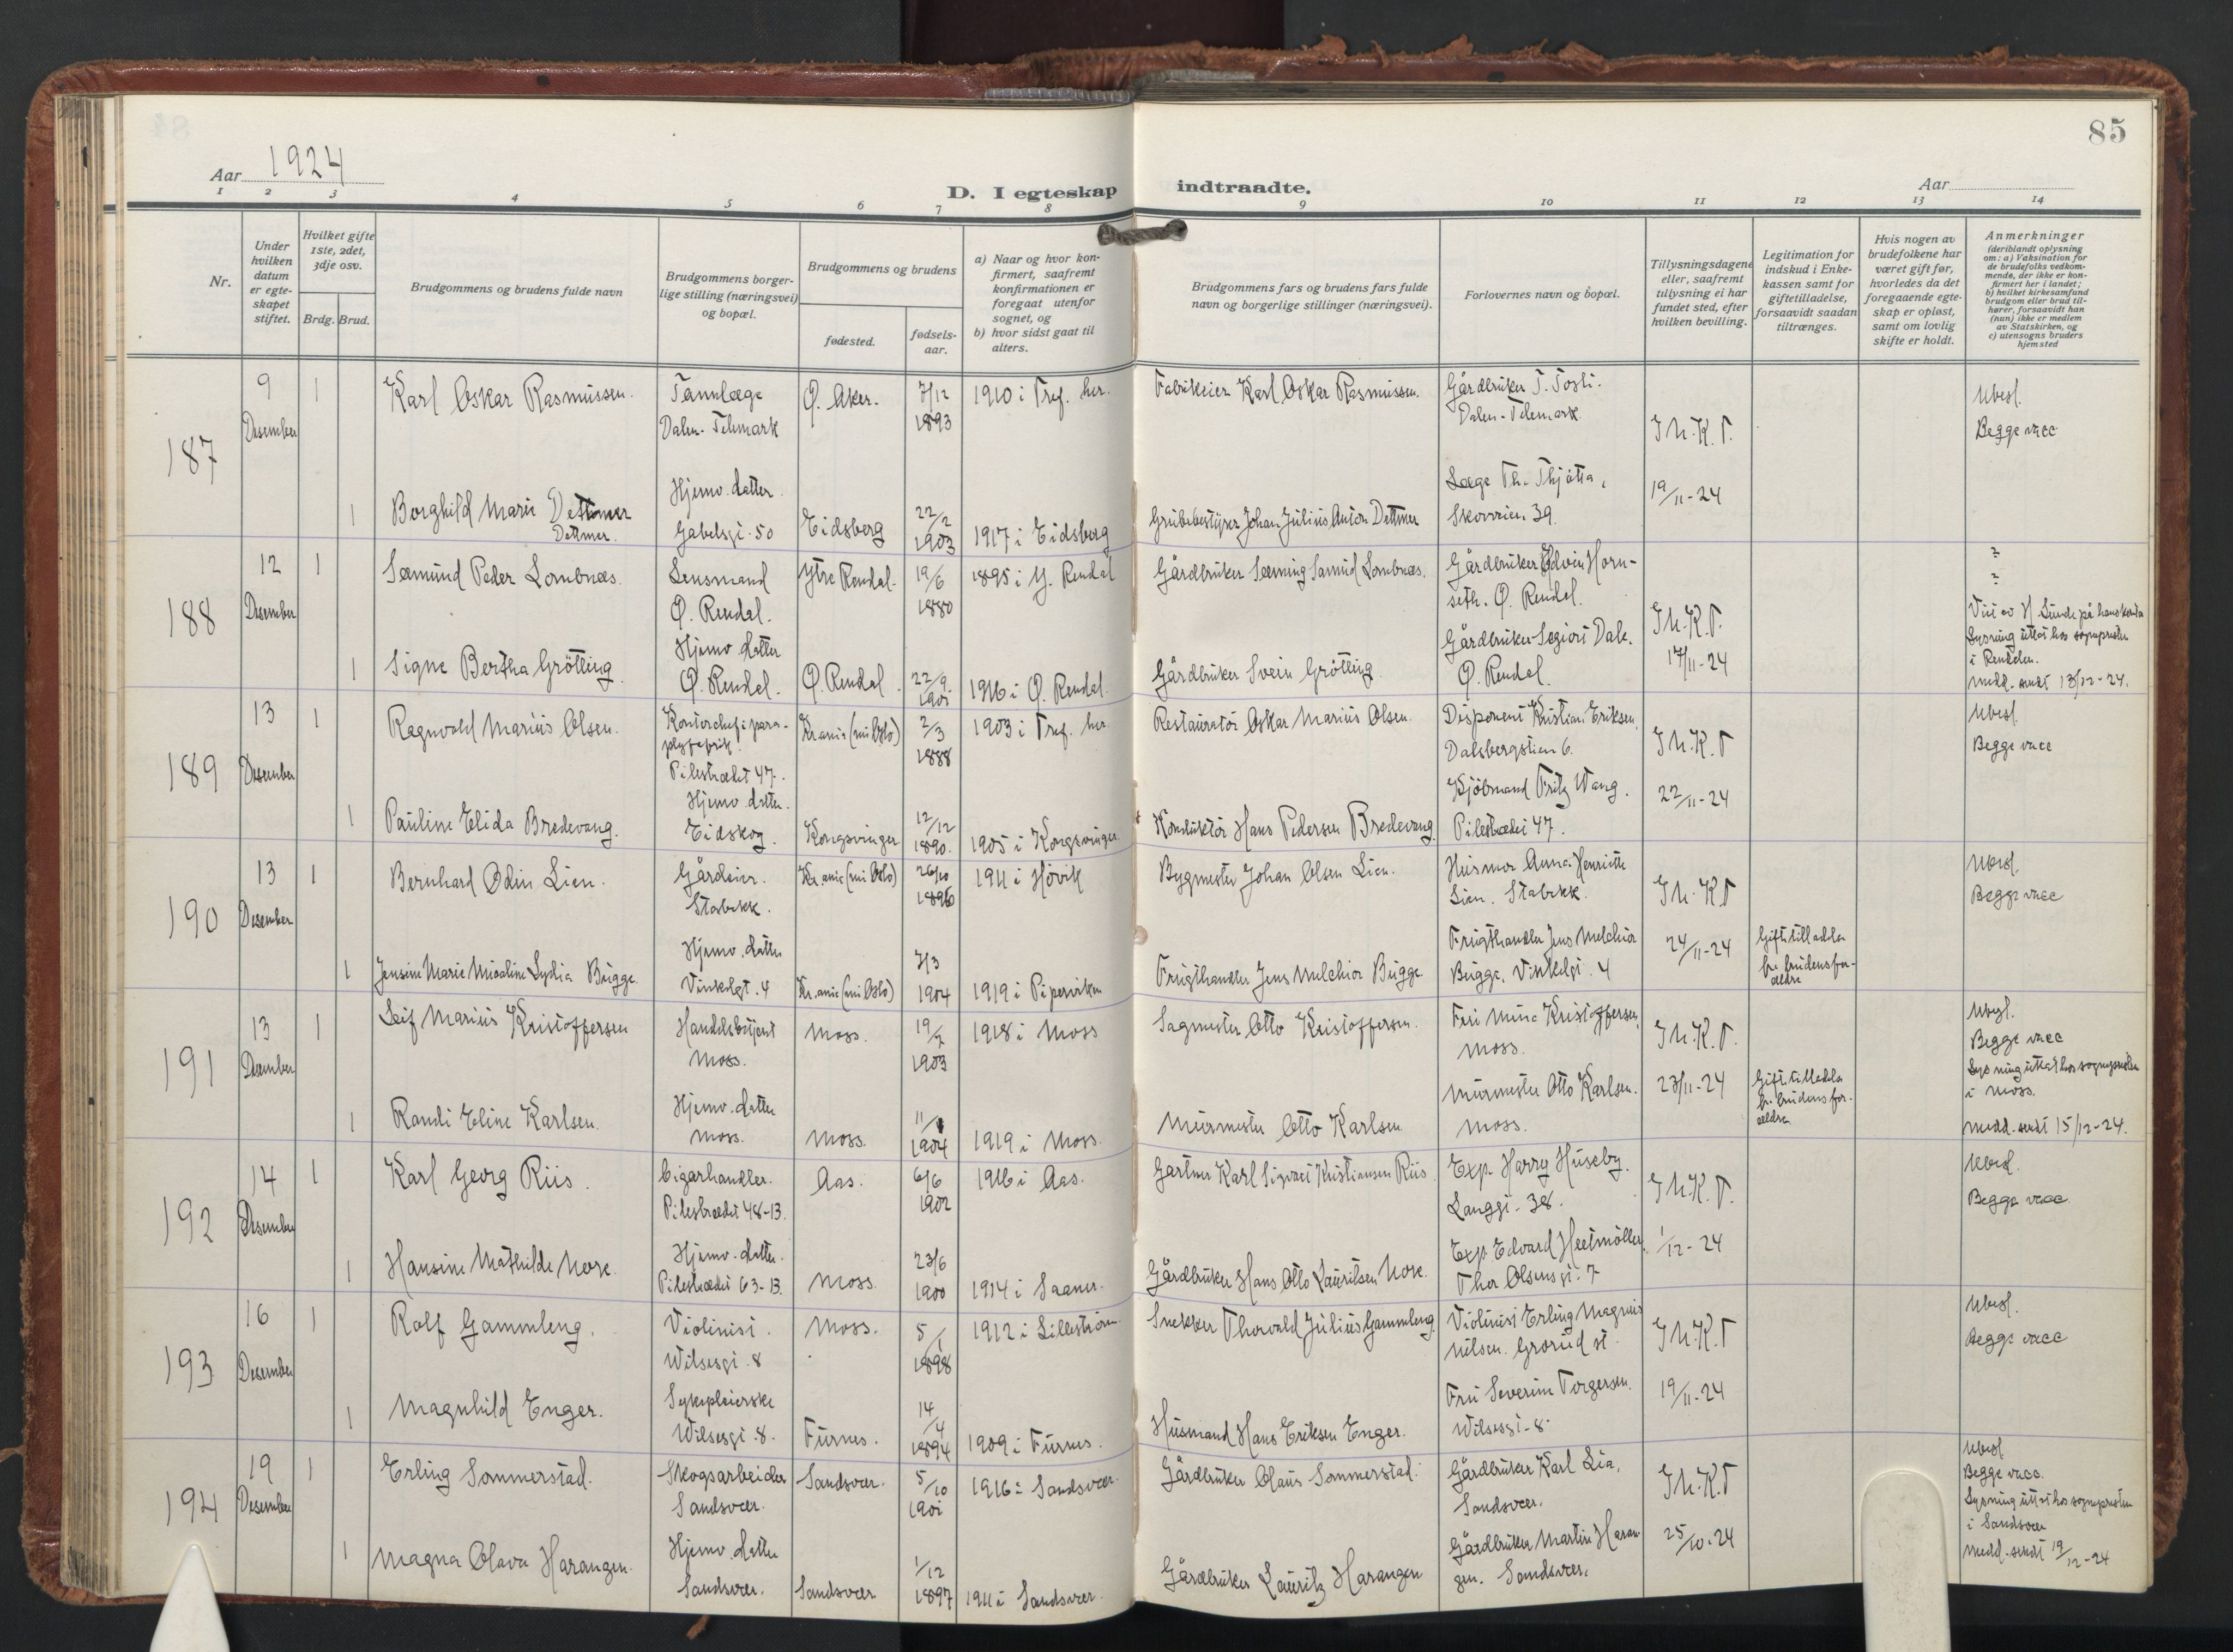 85
Aar 1924
D. I egteskap indtraadte.
Aar
1 2 3 4 5 6 7 8 9 10 11 12 13 14
Nr.
Under hvilken datum er egteskapet stiftet.
Hvilket gifte 1ste, 2det, 3dje osv.
Brdg. Brud.
Brudgommens og brudens fulde navn
Brudgommens borgerlige stilling (næringsvei) og bopæl.
Brudgommens og brudens
fødested.
fødsels-aar.
a) Naar og hvor konfirmert, saafremt konfirmationen er foregaat utenfor sognet, og
b) hvor sidst gaat til alters.
Brudgommens fars og brudens fars fulde navn og borgerlige stillinger (næringsvei).
Forlovernes navn og bopæl.
Tillysningsdagene eller, saafremt tillysning ei har fundet sted, efter hvilken bevilling.
Legitimation for indskud i Enkekassen samt for giftetilladelse, forsaavidt saadan tiltrænges.
Hvis nogen av brudefolkene har været gift før, hvorledes da det foregaaende egteskap er opløst, samt om lovlig skifte er holdt.
Anmerkninger
(deriblandt oplysning om: a) Vaksination for de brudefolks vedkommende, der ikke er konfirmert her i landet; b) hvilket kirkesamfund brudgom eller brud tilhører, forsaavidt han (hun) ikke er medlem av Statskirken, og c) utensogns bruders hjemsted
187
9 Desember
1
Karl Oskar Rasmussen.
Tannlæge
Dalen-Telemark
Ø. Aker.
7/12 1893
1910 i Tref. her.
Fabrikeier Karl Oskar Rasmussen.
Gårdbruker T. Tosli.
Dalen-Telemark
I h. K. T.
19/11-24
Ubesl.
Begge vacc
1
Borghild Marie Dettmer
Dettmer.
Hjemv. datter.
Gabelsgt. 50
Eidsberg
22/2 1903
1917 i Eidsberg
Grubebestyrer Johan Julius Anton Dettmer
Læge Th. Thjøtta,
Skovveien 39.
188
12 Desember
1
Sæmund Peder Lombnæs.
Lensmand
Ø. Rendal.
Ytre Rendal.
19/6 1880
1895 i Y. Rendal
Gårdbruker Sæming Samuel Lombnæs.
Gårdbruker Edvin Hornseth. Ø. Rendal.
I h. K. T.
17/11-24
?
?
Viet av H. Sunde på hans kontor
Lysning uttat hos sognepresten
i Rendalen.
Medd. sendt 13/12-24.
1
Signe Bertha Grötting.
Hjemv. datter
Ø. Rendal.
Ø. Rendal.
22/9 1901
1916 i Ø. Rendal.
Gårdbruker Svein Grötting.
Gårdbruker Segiort Dale.
Ø. Rendal.
189
13 Desember
1
Ragnvald Marius Olsen.
Kontorchef i paraplyfabrik.
Pilestrædet 47.
Kr.ania (nu Oslo)
2/3 1888
1903 i Tref. her.
Restauratör Oskar Marius Olsen.
Disponent Kristian Eriksen,
Dalsbergstien 6.
I h. K. T
22/11-24
Ubesl.
Begge vacc
1
Pauline Elida Bredevang.
Hjemv. datter.
Eidskog.
Kongsvinger
12/12 1890.
1905 i Kongsvinger.
Konduktör Hans Pedersen Bredevang
Kjöbmand Fritz Wang.
Pilestrædet 47.
190
13 Desember
1
Bernhard Odin Lien.
Gårdeier.
Stabekk.
Kr.ania (nu Oslo)
26/10 1896
1911 i Hövik
Bygmester Johan Olsen Lien.
Husmor Anna Henriette
Lien. Stabekk.
I h. K T
24/11-24
Ubesl.
Begge vacc
1
Jensine Marie Nicoline Lydia Bugge.
Hjemv. datter
Vinkelgt. 4
Kr.ania (nu Oslo)
7/3 1904
1919 i Pipervikn
Frugthandler Jens Melchior Bugge.
Frugthandler Jens Melchior
Bugge, Vinkelgt. 4
Giftetilladelse
fr. brudens forældre
191
13 Desember
1
Leif Marius Kristoffersen
Handelsbetjent
Moss.
Moss.
19/7 1903
1918 i Moss
Sagmester Otto Kristoffersen.
Fru Mina Kristoffersen,
Moss.
I h. K. T.
23/11-24
Ubesl.
Begge vacc
Lysning uttat hos sognepresten
i Moss.
Medd. sendt 15/12-24.
1
Randi Eline Karlsen.
Hjemv. datter
Moss.
Moss.
1904
1919 i Moss.
Murmester Otto Karlsen
Murmester Otto Karlsen.
Moss.
Giftetilladelse
fr. brudens forældre
192
14 Desember
1
Karl Georg Riis.
Cigarhandler.
Pilestrædet 48-13.
Aas.
6/6 1902
1916 i Aas.
Gartner Karl Sigvart Kristiansen Riis.
Exp. Harry Huseby.
Langgt. 38.
I h. K. T.
1/12-24
Ubesl.
Begge vacc
1
Hansine Mathilde Nore.
Hjemv. datter.
Pilestrædet 63-13.
Moss.
23/6 1900
1914 i Saaner.
Gårdbruker Hans Otto Lauritsen Nore.
Exp. Edvard Heetmöller.
Thor Olsensgt. 7
193
16 Desember
1
Rolf Gammleng.
Violinist.
Wilsesgt. 8
Moss.
5/1 1898
1912 i Lilleström.
Snekker Thorvald Julius Gammleng.
Violinist Erling Magnus
Nilsen. Grorud st.
I h. K. T
19/11-24
Ubesl.
Begge vacc
1
Magnhild Enger.
Sykepleierske
Wilsesgt. 8.
Furnes.
14/4 1894
1909 i Furnes.
Husmand Hans Eriksen Enger.
Fru Severine Torgersen.
Wilsesgt-8.
194
19 Desember
1
Erling Sommerstad.
Skogsarbeider
Sandsvær.
Sandsvær.
5/10 1901
1916 i Sandsvær.
Gårdbruker Olaus Sommerstad.
Gårdbruker Karl Lia,
Sandsvær.
I h. K. T
25/10-24
Ubesl.
Begge vacc.
Lysning uttat hos sognepresten
i Sandsvær
Medd. sendt 19/12-24
1
Magna Olava Harangen.
Hjemv. datter
Sandsvær.
Sandsvær
1/12 1897
1911 i Sandsvær.
Gårdbruker Lauritz Harangen
Gårdbruker Martin Harangen. Sandsvær.